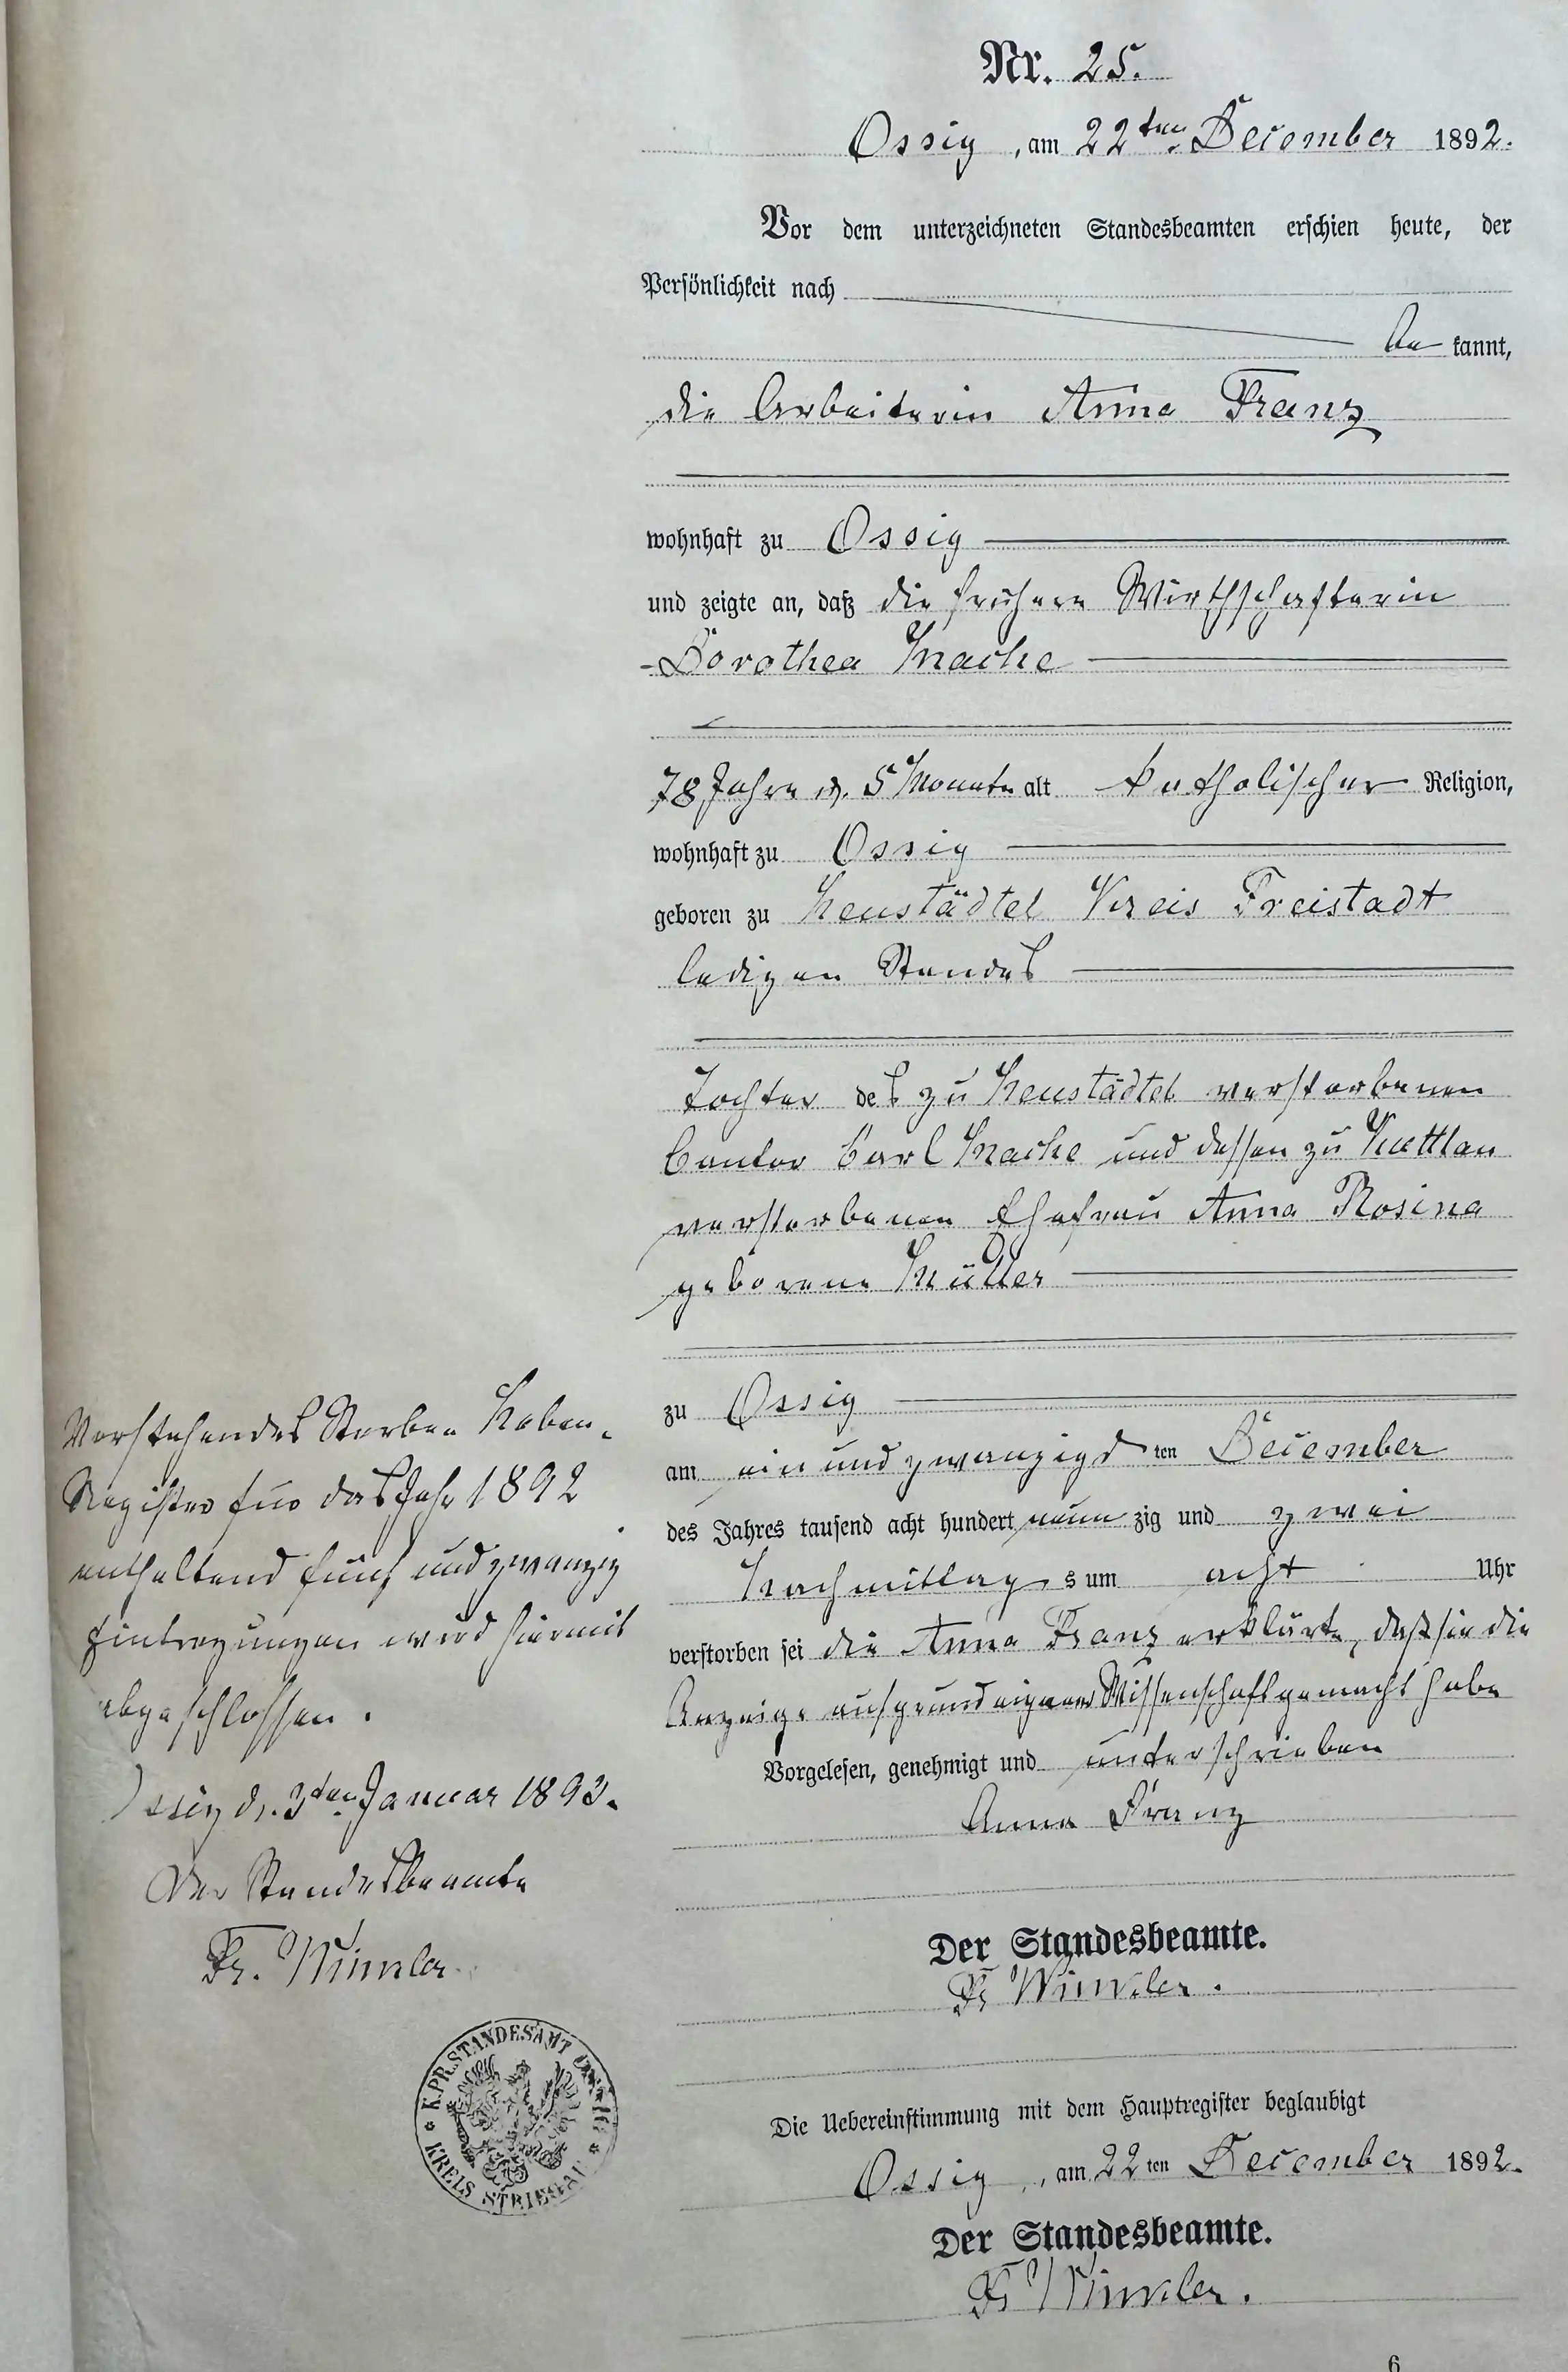 Nr. 25.
Ossig, am 22ten December 1892.
Vor dem unterzeichneten Standesbeamten erschien heute, der
Persönlichkeit nach
be kannt,
die Arbeiterin Anna Franz
wohnhaft zu Ossig
und zeigte an, daß die frühere Wirthschafterin
Dorothea Mache
78 Jahre u. 5 Monate alt katholischer Religion,
wohnhaft zu Ossig
geboren zu Neustädtel Kreis Freistadt
ledigen Standes
Tochter des zu Neustädtel verstorbenen
Cantor Carl Mache und dessen zu Kuttlau
verstorbenen Ehefrau Anna Rosina
geborene Müller
zu Ossig
am ein und zwanzigsten December
des Jahres tausend acht hundert neun zig und zwei
Nachmittags um acht Uhr
verstorben sei die Anna Franz erklärte, daß sie die
Anzeige aufgrund eigener Wissenschaft gemacht habe
Vorgelesen, genehmigt und unterschrieben
Anna Franz
Der Standesbeamte.
Fr Winkler.
Die Uebereinstimmung mit dem Hauptregister beglaubigt
Ossig, am 22ten December 1892.
Der Standesbeamte.
Fr Winkler.
6
Vorstehendes Sterbe Neben-
Register für das Jahr 1892
enthaltend fünf und zwanzig
Eintragungen wird hiermit
abgeschlossen.
Ossig d. 3ten Januar 1893.
Der Standesbeamte
Fr. Winkler
K. PR. STANDESAMT OSSIG
KREIS STRIEGAU